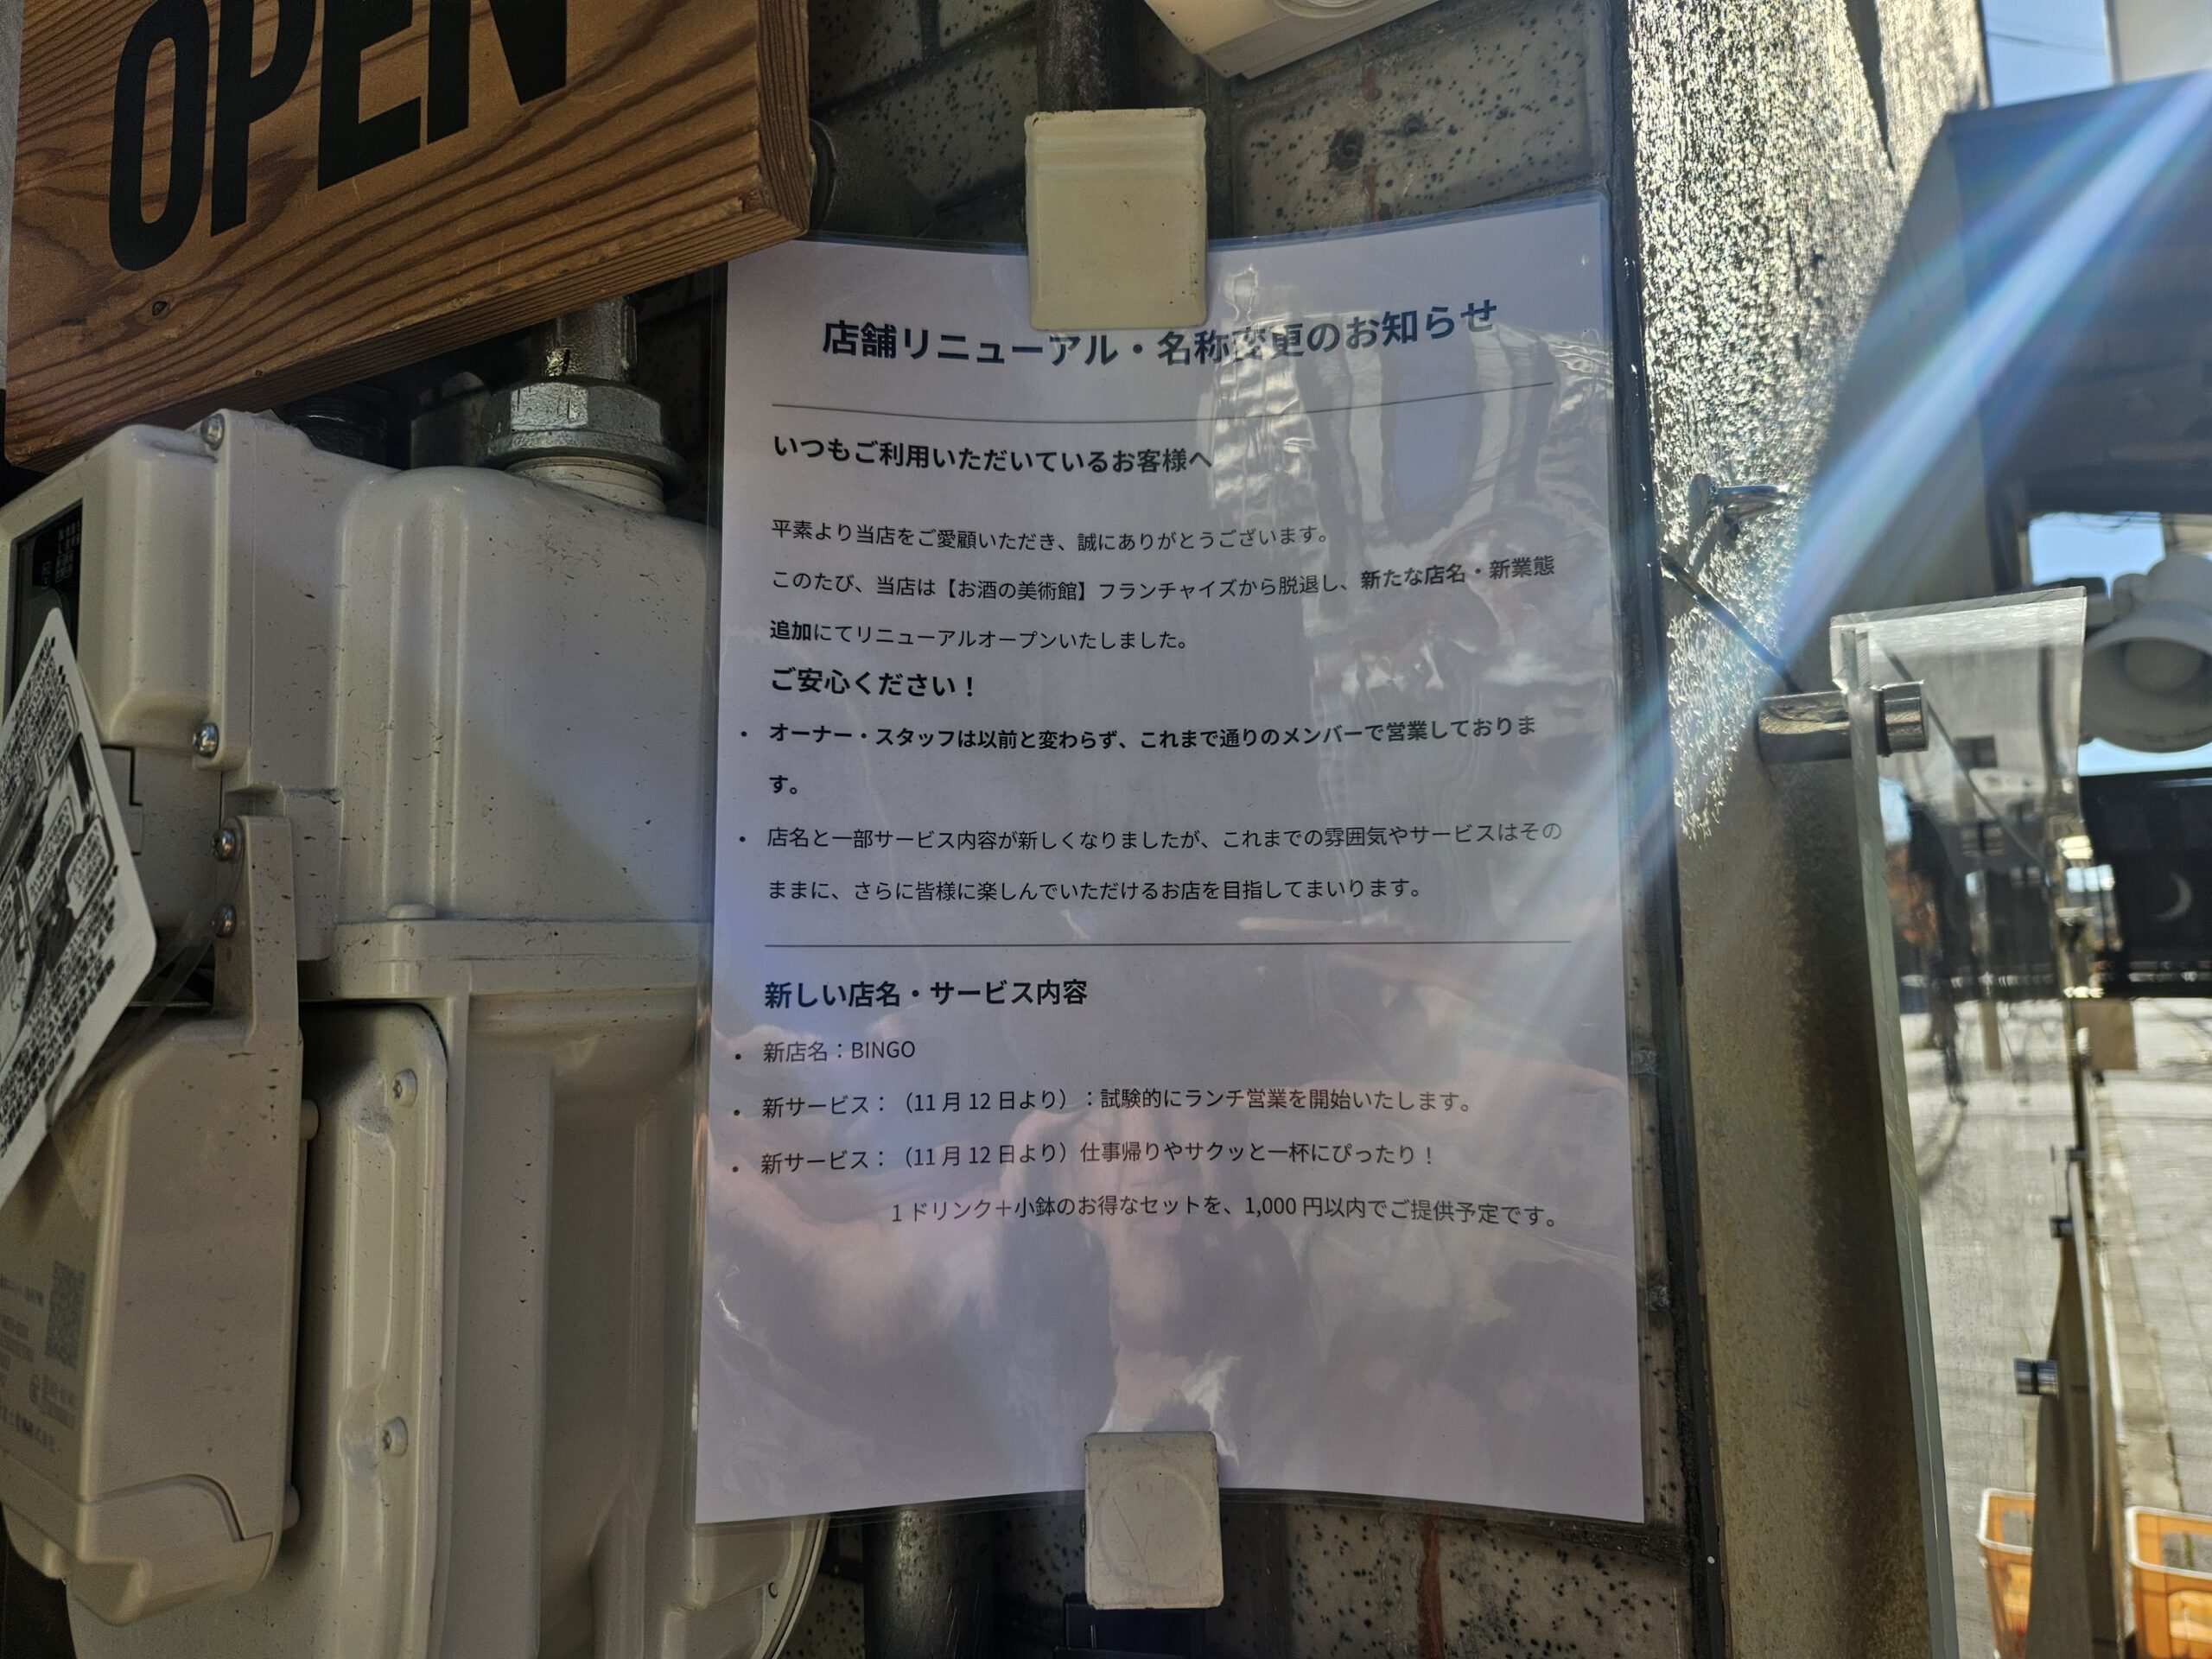 OPEN
店舗リニューアル・名称変更のお知らせ
いつもご利用いただいているお客様へ
平素より当店をご愛顧いただき、誠にありがとうございます。
このたび、当店は【お酒の美術館】フランチャイズから脱退し、新たな店名・新業態
追加にてリニューアルオープンいたしました。
ご安心ください！
・オーナー・スタッフは以前と変わらず、これまで通りのメンバーで営業しておりま
す。
・店名と一部サービス内容が新しくなりましたが、これまでの雰囲気やサービスはその
ままに、さらに皆様に楽しんでいただけるお店を目指してまいります。
新しい店名・サービス内容
・新店名：BINGO
・新サービス：（11月12日より）：試験的にランチ営業を開始いたします。
・新サービス：（11月12日より）仕事帰りやサクッと一杯にぴったり！
1ドリンク＋小鉢のお得なセットを、1,000円以内でご提供予定です。